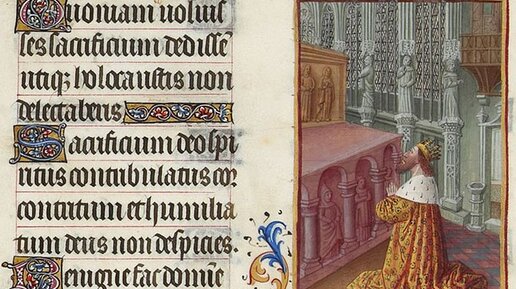 Quoniam uoluis
ses sacrificium dedissē
utiqꝫ holocaustis non
delectaberis
Sacrificium deo spi
ritus contribulatus cor
contritum et humilia
tum deus non despicies.
Benigne fac domīe